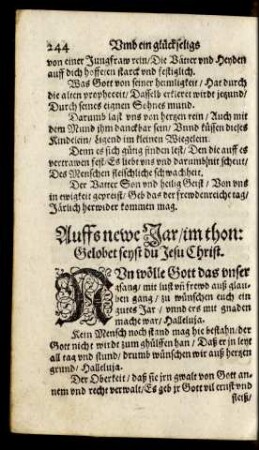 244 Vmb ein glückseligs
von einer Jungfraw rein/Die Vätter vnd Heyden
auff dich hoffeten starck vnd festiglich.
Was Gott von seiner heimligkeit/Hat durch
die alten propheceit/Dasselb erkläret wirdt jezund/
Durch seines eignen Sohnes mund.
Darumb last vns von hertzen rein/Auch mit
dem Mund jhm danckbar sein/Vnnd küssen dieses
Kindelein/ligend im kleinen Wiegelein.
Denn es sich gütig finden lest/Den die auff es
vertrawen fest/Es liebt vns vnd darumbnit scheut/
Des Menschen fleischliche schwachheit.
Der Vatter Son vnd heilig Geist/Von vns
in ewigkeit gepreist/Geb das der frewdenreiche tag/
Järlich herwider kommen mag.
Auffs newe Jar/im thon:
Gelobet seyst du Jesu Christ.
NVn wölle Gott das vnser
gsang/mit lust vñ frewd auß glau-
ben gang/zu wünschen euch ein
gutes Jar/vnnd ers mit gnaden
mache war/Halleluja.
Kein Mensch noch stand mag hie bestahn/der
Gott nicht wirdt zum ghülffen han/Daß er jn leyt
all tag vnd stund/drumb wünschen wir auß hertzen
grund/Halleluja.
Der Oberkeit/daß sie jrn gwalt von Gott an-
nem vnd recht verwalt/Es geb jr Gott vil ernst vnd
fleiß/